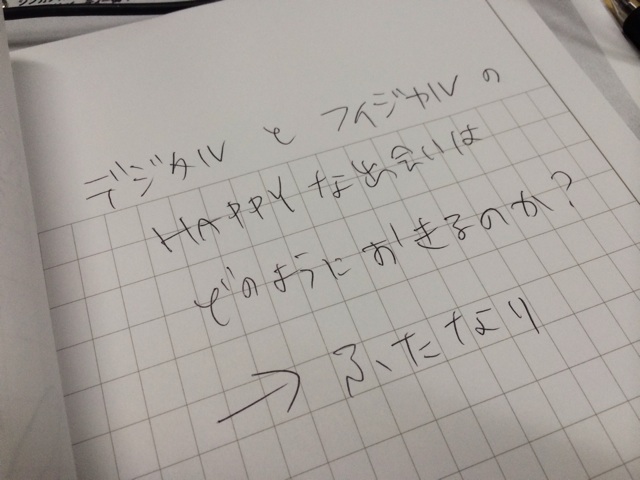 デジタルとフィジカルの
HAPPYな出会いは
どのようにおきるのか?
→ ふたなり